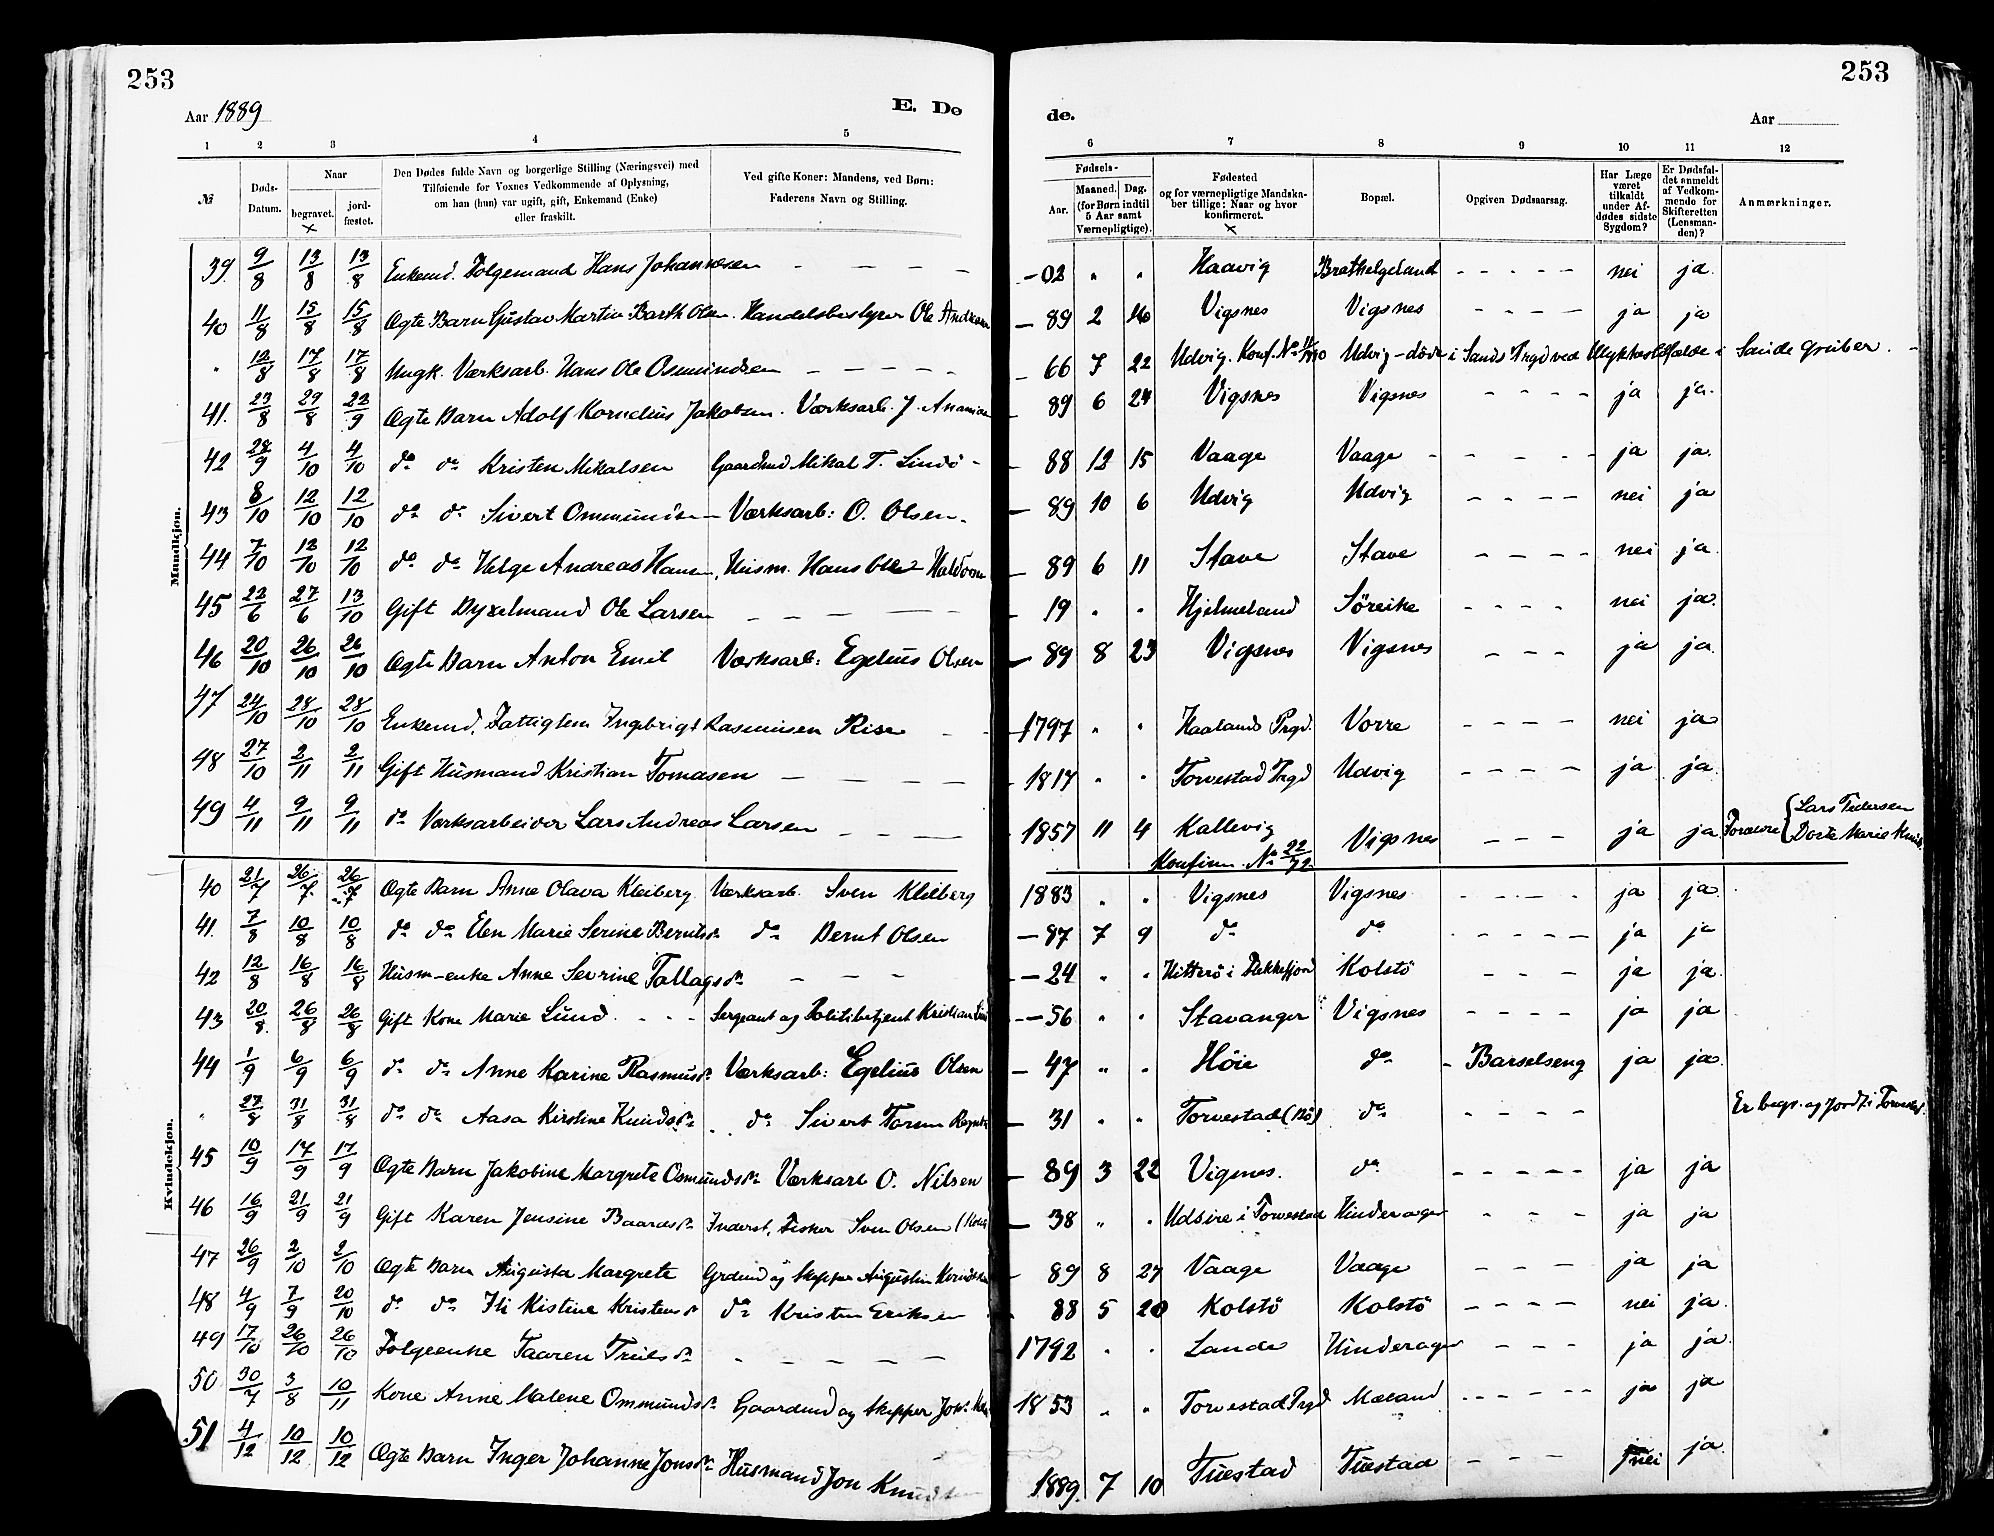 253
253
Aar 1889
E. Dø
de.
Aar
1 2 3 4 5 6 7 8 9 10 11 12
№
Døds-Datum.
Naar
begravet.
jord-fæstet.
Den Dødes fulde Navn og borgerlige Stilling (Næringsvei) med
Tilføiende for Voxnes Vedkommende af Oplysning,
om han (hun) var ugift, gift, Enkemand (Enke)
eller fraskilt.
Ved gifte Koner: Mandens, ved Børn:
Faderens Navn og Stilling.
Fødsels-
Aar.
Maaned. Dag.
(for Børn indtil
5 Aar samt
Værnepligtige).
Fødested
og for værnepligtige Mandskaber tillige: Naar og hvor
konfirmeret.
Bopæl.
Opgiven Dødsaarsag.
Har Læge været tilkaldt under Afdødes sidste Sygdom?
Er Dødsfaldet anmeldt af Vedkommende for Skifteretten (Lensmanden)?
Anmærkninger.
Mandkjøn.
39. 9/8 13/8 13/8 Enkemd. Folgemand Hans Johannesen – – – – – 02 " " Haavig Brathelgeland - - - - - nei ja.
40 11/8 15/8 15/8 Ægte Barn Gustav Martin Barth Olsen. Handelsbestyrer Ole – 89 2 16 Vigsnes Vigsnes - - - - ja ja
" 12/8 17/8 17/8 Ungk. Værksarb. Hans Ole Osmundsen – – – – – – 66 7 22 Udvig. Konf. No Udvig - døde i Sands Prgd ved Ulykkestilfælde i Sande Gruber.
41. 23/8 29/8 22/9 Ægte Barn Adolf Kornelius Jakobsen. Værksarb. J. – 89 6 24 Vigsnes Vigsnes - - - - ja ja.
42 28/9 4/10 4/10 do do Kristen Mikalsen Gaardmd Mikal T. Lindö – 88 12 15 Vaage Vaage - - - - - ja ja.
43 8/10 12/10 12/10 do do Sivert Ommundsen Værksarb: O. Olsen. – 89 10 6 Udvig Udvig - - - - nei ja
44 7/10 12/10 12/10 do do Helge Andreas Hansen, Husm. Hans – 89 6 11 Stave Stave - - - - nei ja
45 22/6 27/6 13/10 Gift Dyxelmand Ole Larsen – – – – – 19 " " Hjelmeland Söreike - - - - nei ja.
46 20/10 26/10 26/10 Ægte Barn Anton Emil Værksarb: Egelius Olsen – 89 8 23 Vigsnes Vigsnes - - - ja ja.
47 24/10 28/10 28/10 Enkemd. Fattiglem Ingebrigt Rasmusen Rise – – 1797 " " Haalands Prgd. Vorre - - - - nei ja
48 27/10 2/11 2/11 Gift Husmand Kristian Tomasen – – – – 1817 " " Torvestad Prgd Udvig - - - - ja ja
49 4/11 9/11 9/11 do Værksarbeider Lars Andreas Larsen – – – 1857 11 4 Kallevig Konfirm. No 22/72 Vigsnes - - - ja ja
Lars Pedersen
Dorte Marie
Kvindekjøn.
40 21/7 26/7 26/7 Ægte Barn Anne Olava Kleiberg Værksarb. Sven Kleiberg 1883 " " Vigsnes Vigsnes - - - - ja ja.
41. 7/8 10/8 10/8 do do Elen Marie Serine Berntsdr do Bernt Olsen – 87 7 9 do do - - - - - ja ja
42 12/8 16/8 16/8 Husm-enke Anne Sevrine Tallagsdr – – – – 24 " " Hitterö i Flekkefjord Kolstö - - - ja ja.
43 20/8 26/8 26/8 Gift Kone Marie Lund. - - - Sergeant og Politibetjent Kristian Lund – 56 " " Stavanger Vigsnes - - - - ja ja
44 1/9 6/9 6/9 do do Anne Karine Rasmusdr Værksarb: Egelius Olsen – 47 " " Höie do - Barselseng ja ja.
" 27/8 31/8 31/8 do do Aasa Kirstine Knudsdr do Sivert – 31 " " Torvestad (Bö) do - - - - Er begr. og Jordf. i Torvestad.
45 10/9 17/9 17/9 Ægte Barn Jakobine Margrete Osmundsdr Værksarb O. Nilsen – 89 3 22 Vigsnes. do - - - - - ja ja
46 16/9 21/9 21/9 Gift Karen Jensine Baardsdr Inderst, Fisker Sven Olsen – 38 " " Udsire i Torvestad Hinderager - - - ja ja
47 26/9 2/10 2/10 Ægte Barn Augusta Margrete Grdmd og Skipper Augustin – 89 8 27 Vaage Vaage - - - ja ja
48 4/9 7/9 20/10 do do Ili Kistine Kristensdr do Kristen Eriksen – 88 5 20 Kolstö Kolstö - - - - nei ja.
49 17/10 26/10 26/10 Folgeenke Taaren Truelsdr – – – – – 1792 " " Lande Hinderager - - - ja ja.
50 30/7 3/8 10/11 Kone Anne Malene Ommundsdr Gaardmd og Skipper 1853 " " Torvestad Prgd Mæland - - - - - ja ja
51 4/12 10/12 10/12 Ægte Barn Inger Johanne Jonsdr Husmand Jon Knudsen 1889. 7 10 Tuestad Tuestad - - - nei ja.